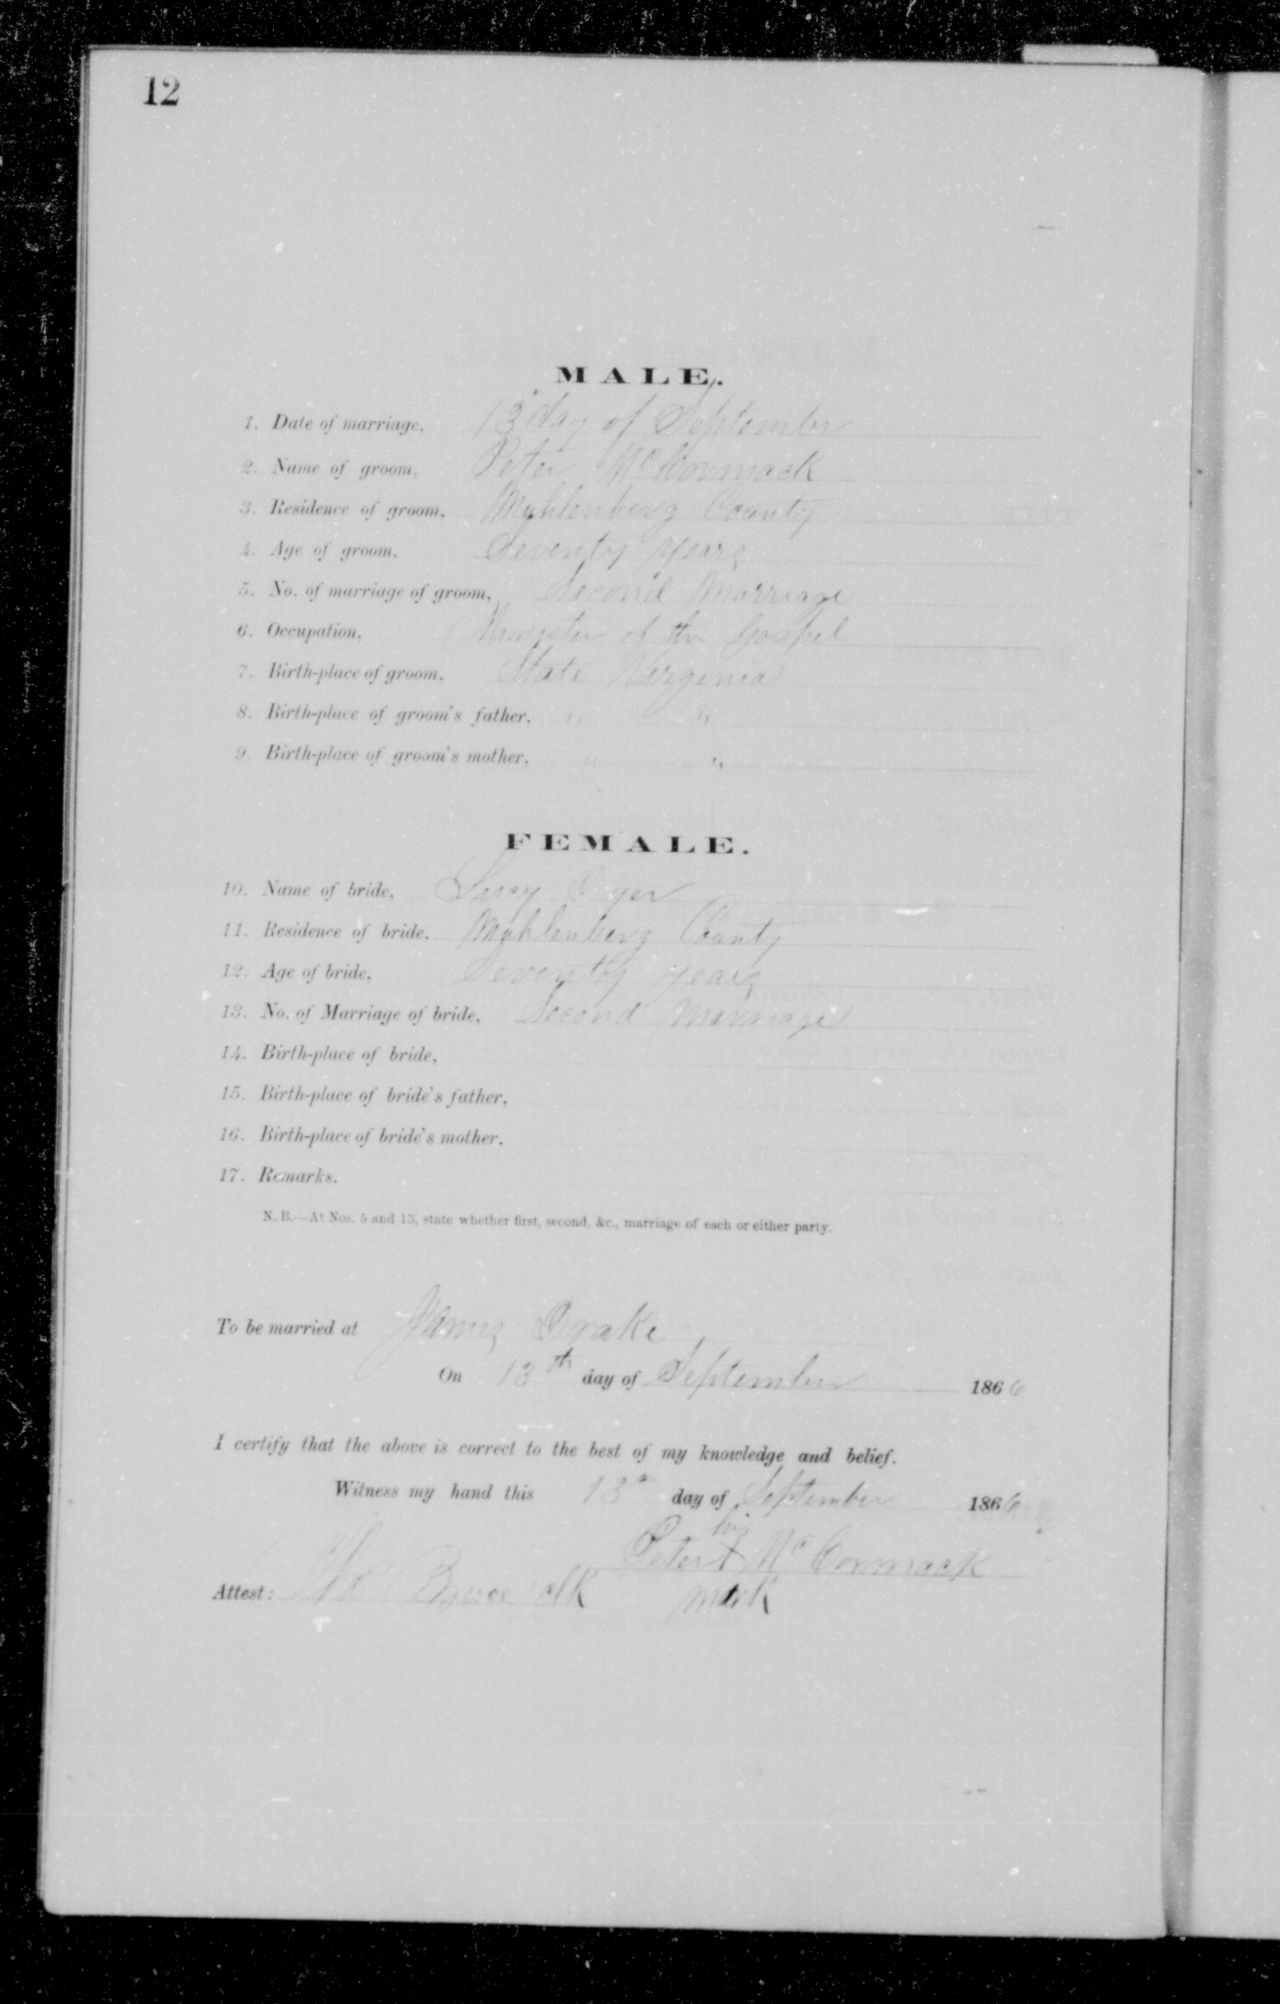 12
MALE.
1. Date of marriage, 13 day of September
2. Name of groom, Peter McCormack
3. Residence of groom, Muhlenberg County
4. Age of groom, Seventy years
5. No. of marriage of groom, Second Marriage
6. Occupation, Minister of the Gospel
7. Birth-place of groom, State Virginia
8. Birth-place of groom's father, " "
9. Birth-place of groom's mother, " "
FEMALE.
10. Name of bride, Dyer
11. Residence of bride, Muhlenberg County
12. Age of bride, Seventy years
13. No. of Marriage of bride, Second Marriage
14. Birth-place of bride,
15. Birth-place of bride's father,
16. Birth-place of bride's mother,
17. Remarks.
N. B.—At Nos. 5 and 13, state whether first, second, &c., marriage of each or either party.
To be married at James Drake
On 13th day of September 1866
I certify that the above is correct to the best of my knowledge and belief.
Witness my hand this 13th day of September 1866
his
Peter X McCormack
Attest: Bruce clk mark